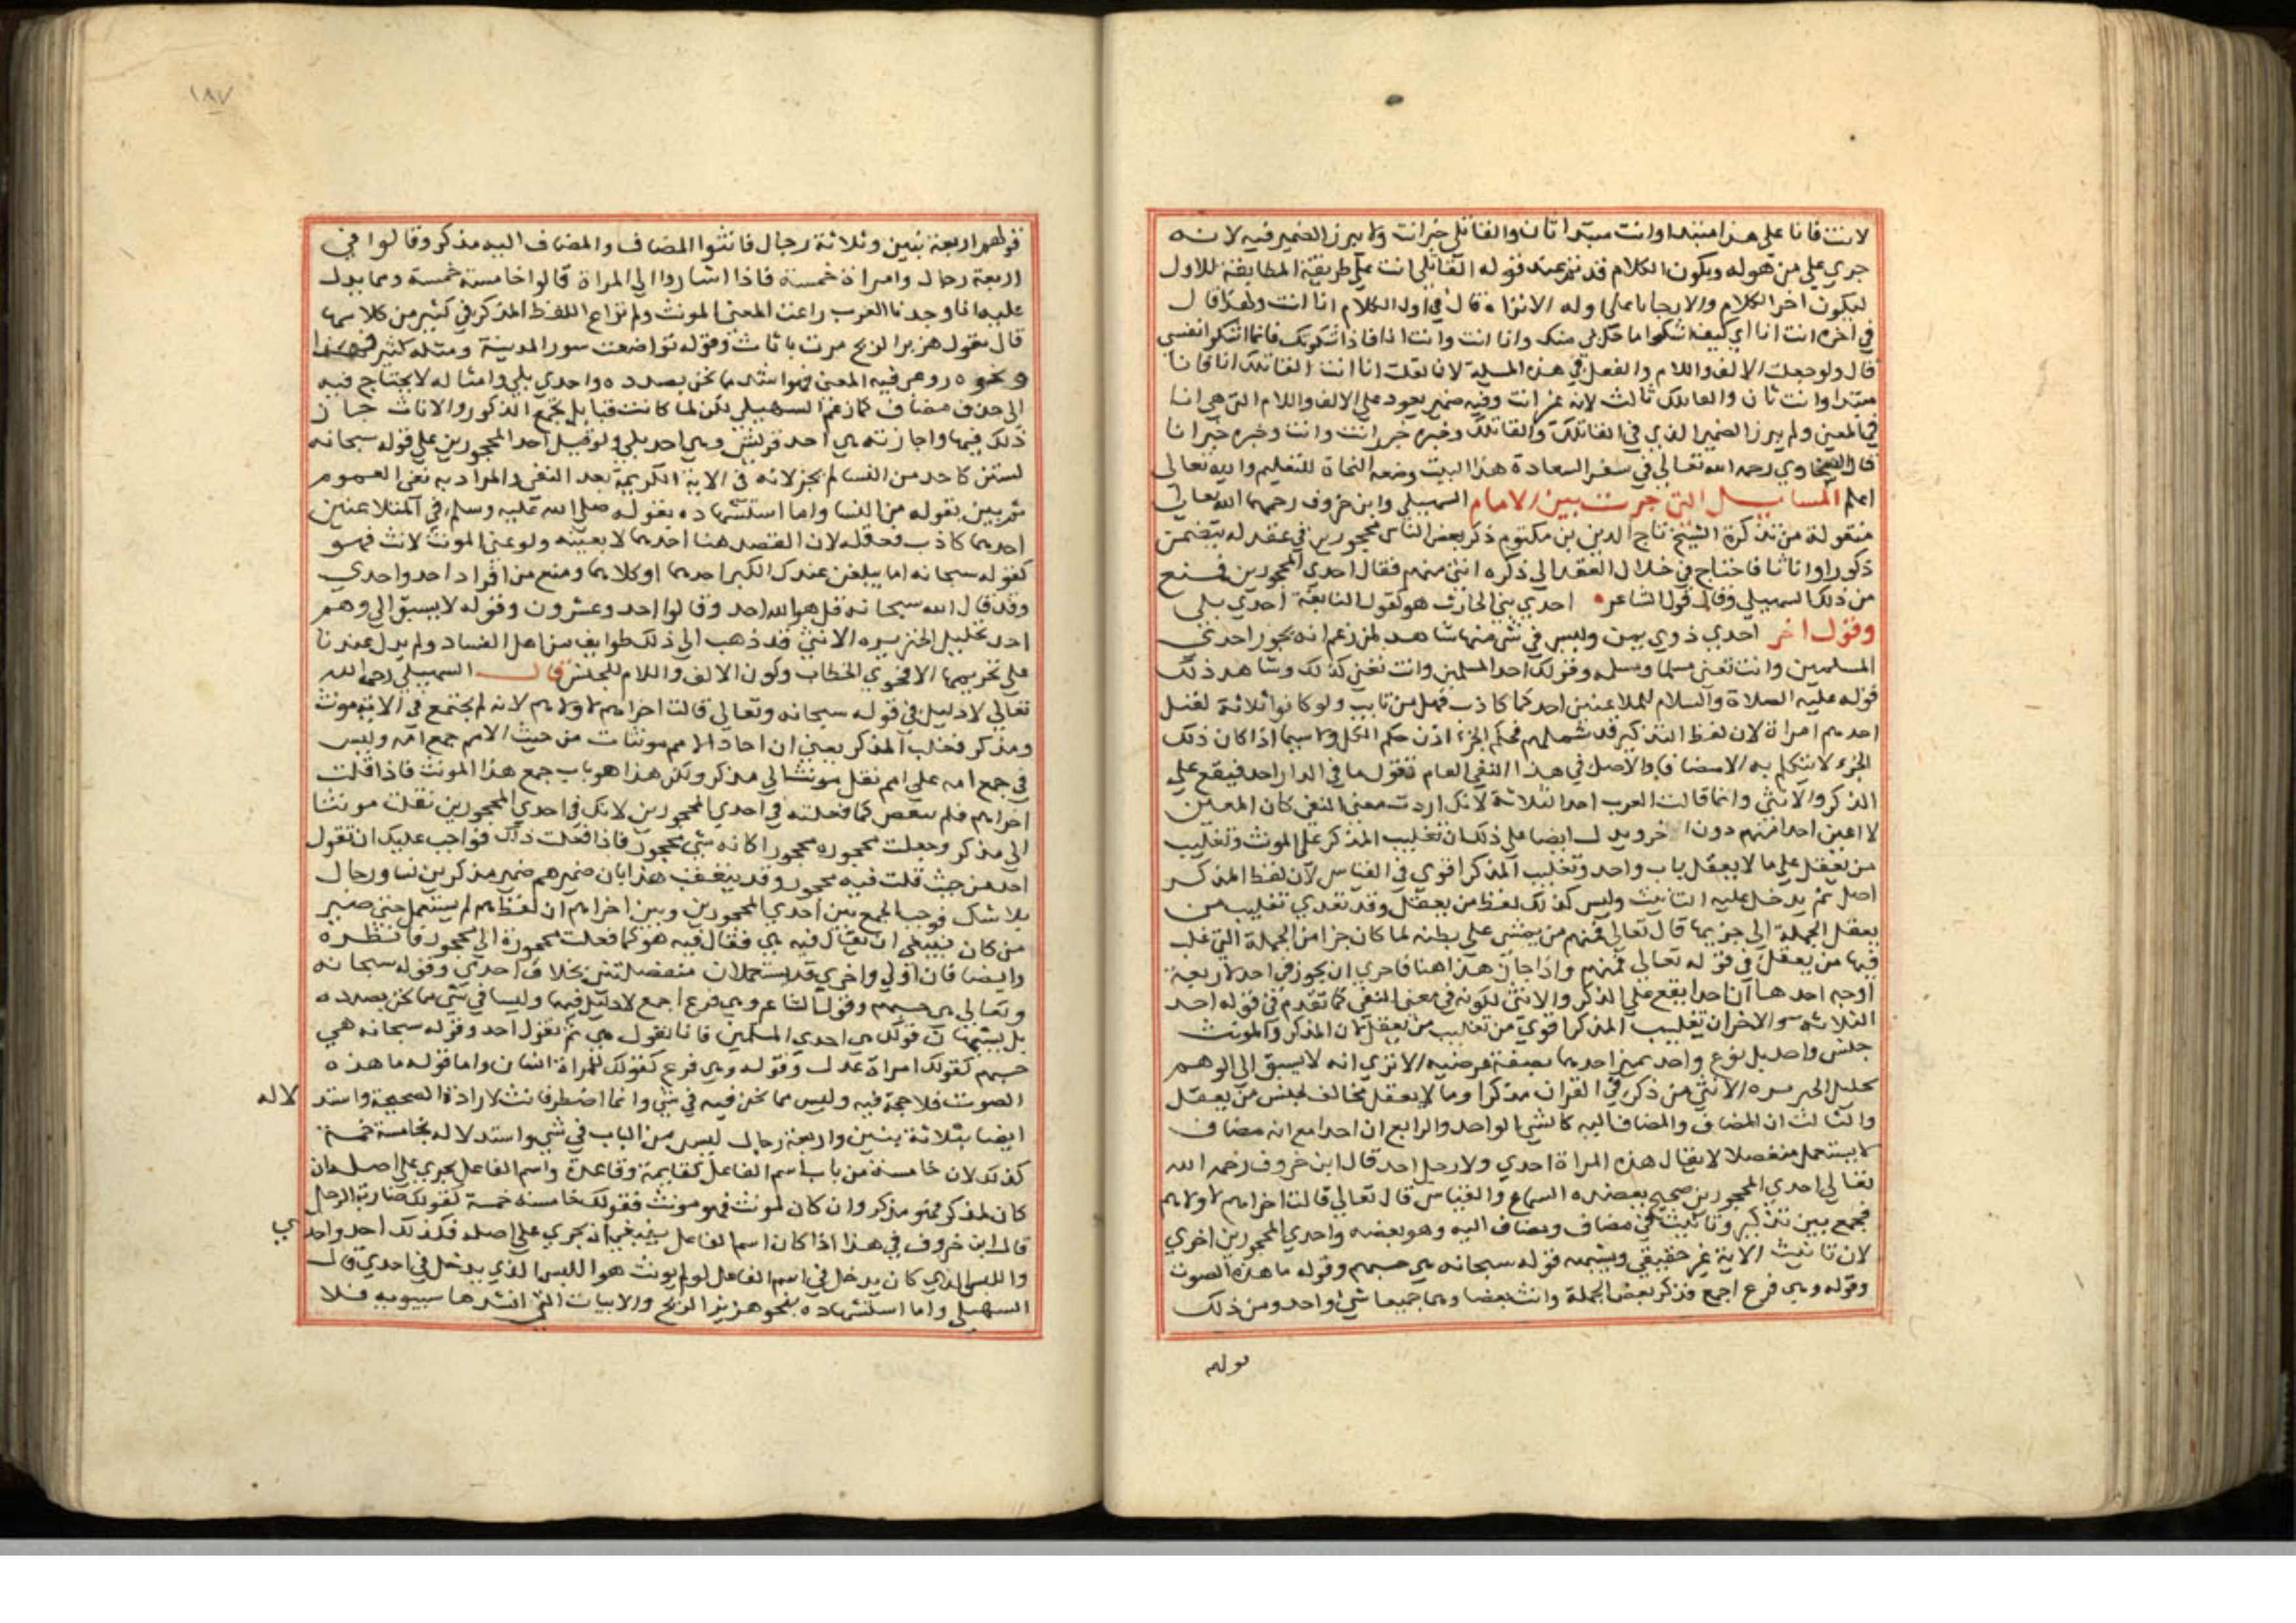 لانت فانا على هذا مبتدا وانت مبتدا ثان والقاتلي خبر انت ولم يبرز الضمير فيه لانه
جري على من هو له ويكون الكلام قد تم عند قوله القاتلي انت على طريقة المطابقة للاول
ليكون اخر الكلام والا يجابا على اوله الا تراه قال في اول الكلام انا انت ولهذا قال
في اخره انت انا اي كيف اشكوا ما حل بي منك وانا انت وانت انا فاذا شكوتك فانما اشكوا نفسي
قال ولو جعلت الالف واللام والفعل في هذه المسلة لان لقلت انا انت القاتلك انا فانا
مبتدا وانت ثان والقاتلك ثالث لانه غير انت وفيه ضمير يعود على الالف واللام التي هي انا
في المعنى ولم يبرز الضمير الذي في القاتلك والقاتلك وخبره خبر انت وانت وخبره خبر انا
قال السخاوي رحمه الله تعالي في سفر السعادة هذا البيت وضعه النحاة للتعليم والله تعالى
اعلم المسايل التي جرت بين الامام السهيلي وابن خروف رحمهما الله تعالى
منقولة من تذكرة الشيخ تاج الدين بن مكتوم ذكر بعض الناس محجورين في عقد له يتضمن
ذكورا واناثا فاحتاج في خلال العقد الي ذكره انثي منهم فقال احدي المحجورين فمنع
من ذلك السهيلي وقال قول الشاعر احدي بني الحارث هو كقول النابغة احدي بلي
وقول اخر احدي ذوي يمن وليس في شي منها شاهد لمن زعم انه يجوز احدي
المسلمين وانت تعني مسلما ومسلمة وقولك احد المسلمين وانت تعني كذلك وشاهد ذلك
قوله عليه الصلاة والسلام للملاعنين احدكما كاذب فهل من تايب ولو كانوا ثلاثة لقيل
احدهم امراة لان لفظ التذكير قد شملهم فحكم الجزء اذن حكم الكل ولا سيما اذا كان ذلك
الجزء لا يتكلم به الا مضافا والاصل في هذا النفي العام تقول ما في الدار احد فيقع على
الذكر والانثي وانما قالت العرب احد الثلاثة لانك اردت معنى النفي كان المعنى
لا اعين احدا منهم دون الاخر ويدل ايضا على ذلك ان تغليب المذكر على المونث وتغليب
من يعقل على ما لا يعقل باب واحد وتغليب المذكر اقوي في القياس لان لفظ المذكر
اصل ثم يدخل عليه التانيث وليس كذلك لفظ من يعقل وقد تعدي تغليب من
يعقل الجملة الى جزيها قال تعالى فمنهم من يمشي على بطنه لما كان جزا من الجملة التي غلب
فيها من يعقل في قوله تعالى فمنهم واذا جاز هذا هنا فاحري ان يجوز في احد لاربعة
اوجه احدها ان احدا يقع على الذكر والانثى لكونه في معنى النفي كما تقدم في قوله احد
الثلاثة والاخر ان تغليب المذكر اقوي من تغليب من يعقل لان المذكر والمونث
جنس واحد بل نوع واحد تميز احدهما بصفة عرضيه الا تري انه لا يسبق الى الوهم
الانثي من ذكر في القران مذكرا وما لا يعقل مخالف لجنس من يعقل
والثالث ان المضاف والمضاف اليه كالشي الواحد والرابع ان احدا مع انه مضاف
لا يستعمل منفصلا لا يقال هذه المراة احدي ولا رجل احد قال ابن خروف رحمه الله
تعالي احدي المحجورين صحيح يعضده السماع والقياس قال تعالى قالت اخراهم لاولاهم
فجمع بين تذكير وتانيث في مضاف ومضاف اليه وهو بعضه واحدي المحجورين اخري
لان تانيث الاية غير حقيقي ويشبهه قوله سبحانه هي حسبهم وقوله ما هذه الصوت
وقوله وهي فرع اجمع فذكر بعض الجملة وانث بعضا وهما جميعا شي واحد ومن ذلك
قولهم
١٨٧
قولهم اربعة بنين وثلاثة رجال فانثوا المضاف والمضاف اليه مذكر وقالوا في
اربعة رجال وامراة خمسة فاذا اشاروا الي المراة قالوا خامسة خمسة ومما يدل
عليه انا وجدنا العرب راعت المعنى المونث ولم تراع اللفظ المذكر في كثير من كلامها
قال يقول هزيز الريح مرت باثاث وقوله تواضعت سور المدينة ومثله كثير فهذا
ونحوه روعي فيه المعنى فهو اشد مما نحن بصدده واحدي بلي وامثاله لا يحتاج فيه
الى حذف مضاف كما زعم السهيلي لكن لما كانت قبايل تجمع الذكور والاناث جاز
ذلك فيها واجازته هي احد قريش وهي احد بلي ولو قيل احد المحجورين على قوله سبحانه
لستن كاحد من النسا لم يجز لانه في الاية الكريمة بعد النفي والمراد به نفي العموم
ثم بين بقوله من النسا واما استشهاده بقوله صلى الله عليه وسلم في المتلاعنين
احدهما كاذب فحق له لان القصد هنا احدهما لا بعينه ولو عنى المونث لانث فهو
كقوله سبحانه اما يبلغن عندك الكبر احدهما او كلاهما ومنع من افراد احد واحدي
وقد قال الله سبحانه قل هو الله احد وقالوا احد وعشرون وقوله لا يسبق الى وهم
احد تحليل الخنزيره الانثى قد ذهب الي ذلك طوايف من اهل الفساد ولم يدل عندنا
على تحريمها الا فحوي الخطاب وكون الالف واللام للجنس قال السهيلي رحمه الله
تعالي لا دليل في قوله سبحانه وتعالى قالت اخراهم لاولاهم لانه لم يجتمع في الاية مونث
ومذكر فغلب المذكر يعني ان احاد الامم مونثات من حيث الامم جمع امه وليس
في جمع امه على امم نقل مونث الي مذكر ولكن هذا هو باب جمع هذا المونث فاذا قلت
اخراهم فلم تنقص كما فعلته في احدي المحجورين لانك في احدي المحجورين نقلت مونثا
الى مذكر وجعلت محجوره محجورا كانه شي محجور فاذا فعلت ذلك فواجب عليك ان تقول
احد من حيث قلت فيه محجور وقد ينفصف هذا بان ضميرهم ضمير مذكرين نسا ورجال
بلا شك فوجب الجمع بين احدي المحجورين وبين اخراهم ان لفظهم لم يستعمل حتى صير
من كان ينبغي ان يقال فيه هي فقال فيه هو كما فعلت محجورة الي محجور فانظره
وايضا فان اولي واخري قد استعملان منفصلتين بخلاف احدي وقوله سبحانه
وتعالي هي حسبهم وقول الشاعر وهي فرع اجمع لا دليل فيها وليسا في شي مما نحن بصدده
بل يشبهان قولك هي احدي المسلمين فانا نقول هي ثم نقول احد وقوله سبحانه هي
حسبهم كقولك امراة عدل وقوله وهي فرع كقولك للمراة انسان واما قوله ما هذه
الصوت فلا حجة فيه وليس مما نحن فيه في شي وانما اضطر فانث لارادة الصيحة واستد لاله
ايضا بثلاثة بنين واربعة رجال ليس من الباب في شي واستدلاله بخامسة خمسة
كذلك لان خامسة من باب اسم الفاعل كقايمة وقاعدة واسم الفاعل يجري على اصله ان
كان لمذكر فهو مذكر وان كان لمونث فهو مونث فقولك خامسة خمسة كقولك ضاربة الرجل
قال ابن خروف في هذا اذا كان اسم الفاعل ينبغي ان يجري على اصله فكذلك احد واحدي
واللبس الذي كان يدخل في اسم الفاعل لو لم يونث هو اللبس الذي يدخل في احدي قال
السهيلي واما استشهاده بنحو هزيز الريح والابيات التي انشدها سيبويه فلا